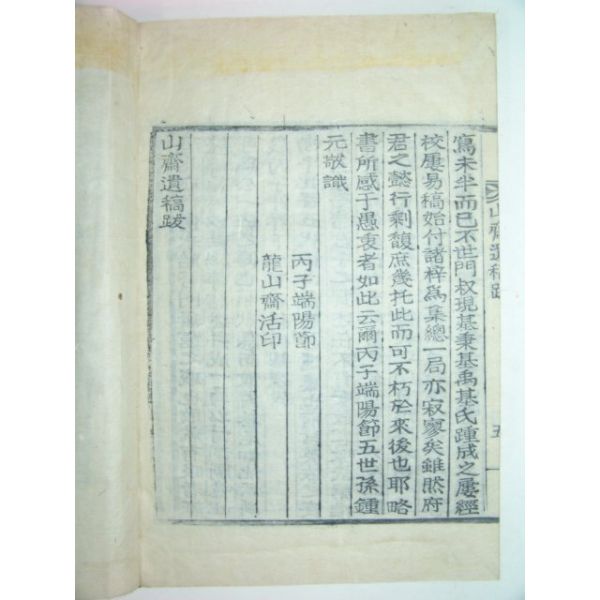 山齋遺稿跋
五
寫未半而已不世門叔現基秉基禹基氏踵成之屢經
校屢易稿始付諸梓爲集總一局亦寂寥矣雖然府
君之懿行剩馥庶幾托此而可不朽於來後也耶略
書所感于愚衷者如此云爾丙子端陽節五世孫鍾
元敬識
丙子端陽節
龍山齋活印
山齋遺稿跋